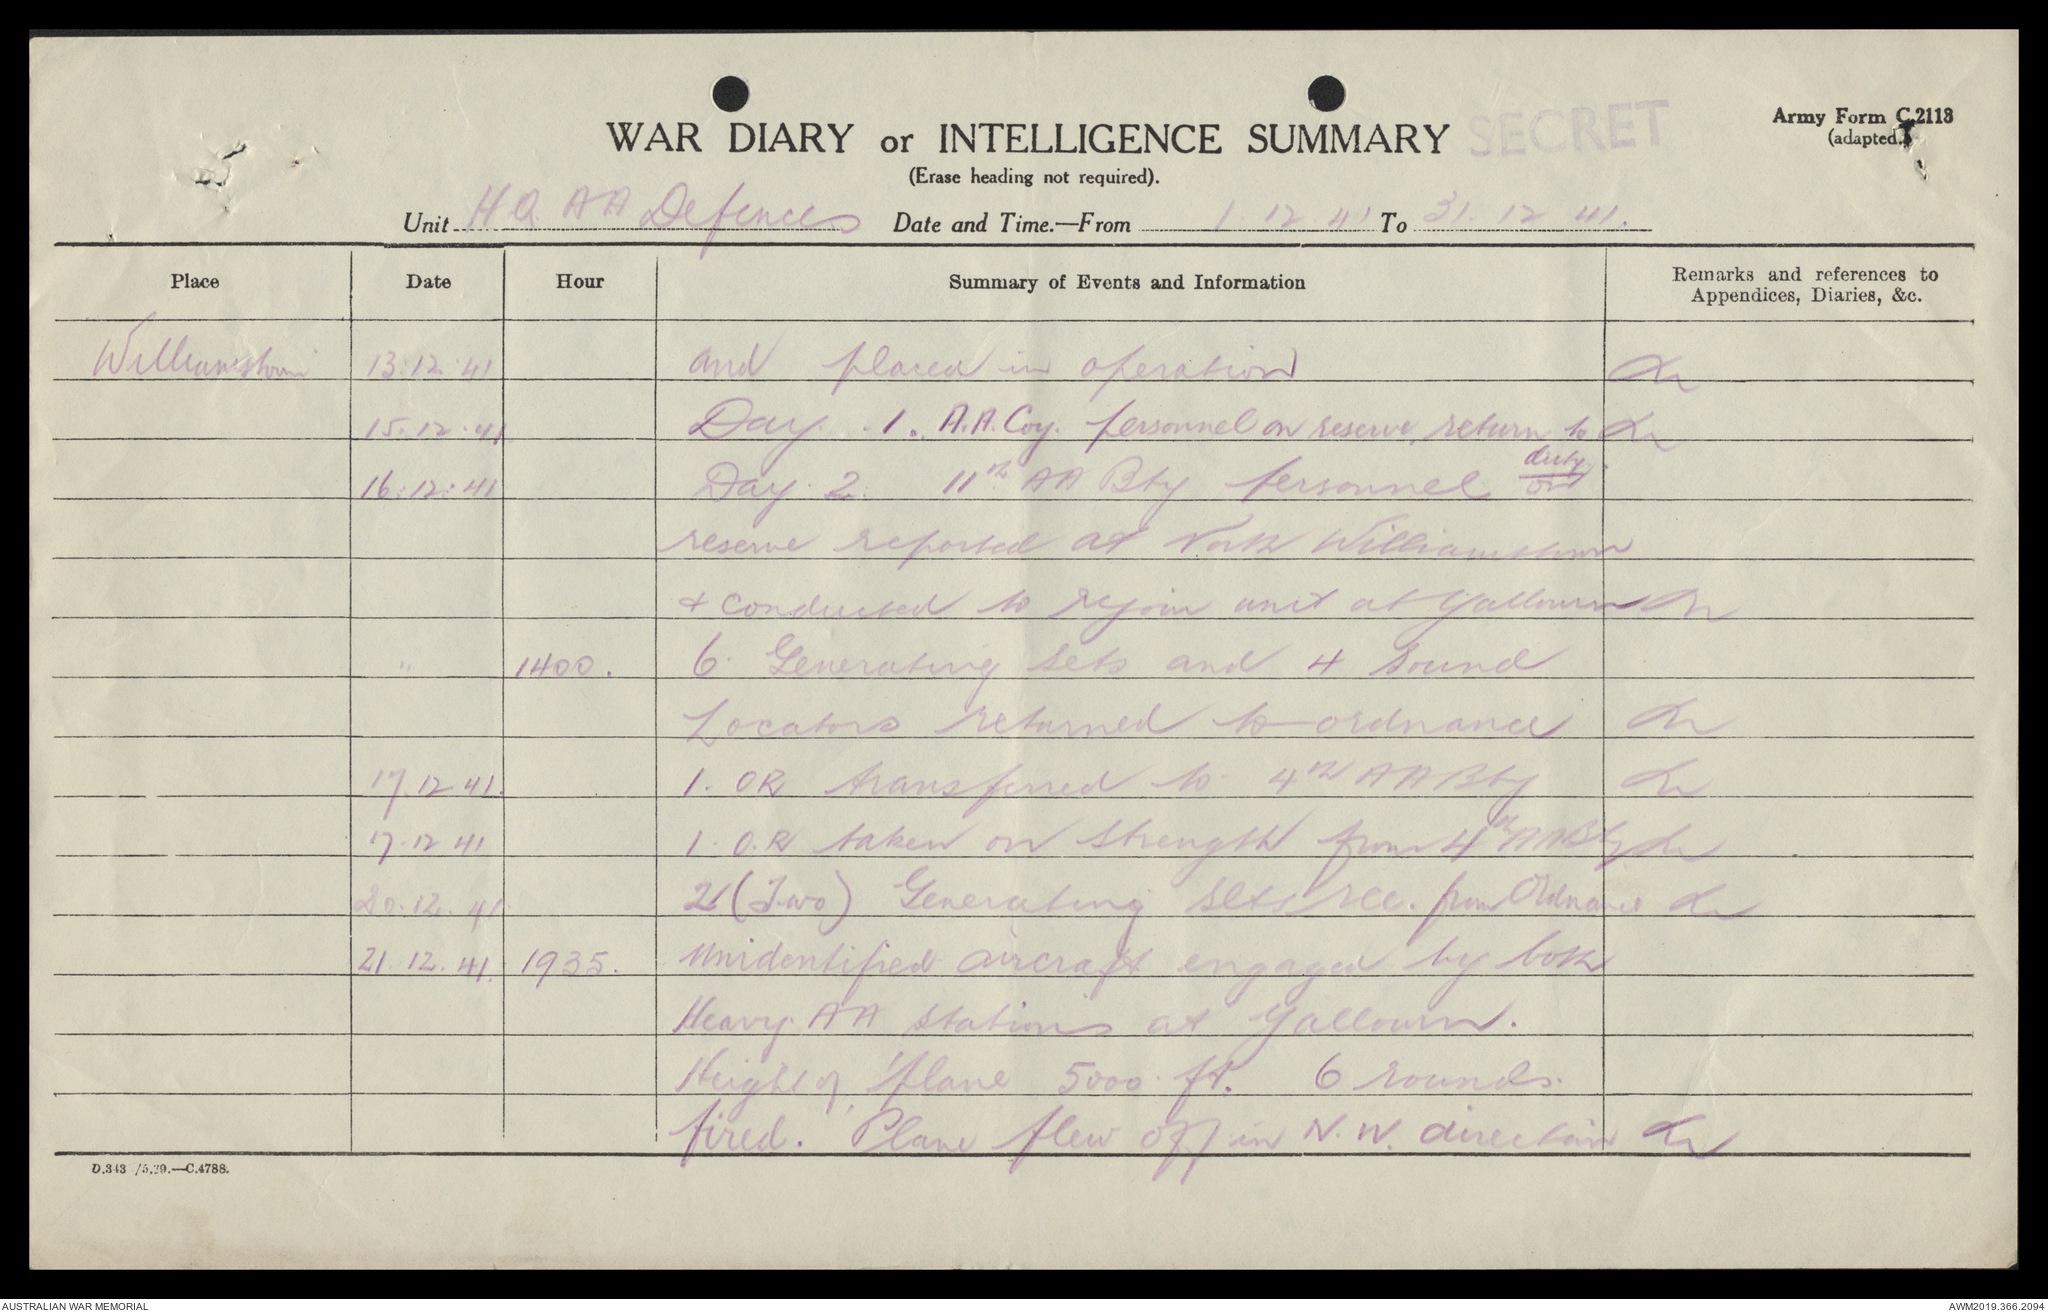 WAR DIARY or INTELLIGENCE SUMMARY
SECRET
Army Form C.2118
(adapted.)
(Erase heading not required).
Unit H Q AA Defences Date and Time.—From 1.12.41 To 31.12.41.
Place Date Hour Summary of Events and Information Remarks and references to
Appendices, Diaries, &c.
Williamstown 13.12.41 and placed in operation
15.12.41 Day. 1. A.A. Coy. personnel on reserve return to
duty.
16.12.41 Day 2. 11th AA Bty personnel on
reserve reported at North Williamstown
+ conducted to rejoin unit at Yallourn
" 1400. 6. Generating sets and 4 Sound
Locators returned to ordnance
17.12.41. 1. OR transferred to 4th AA Bty
17.12.41 1. O.R taken on strength from 4th AA Bty
20.12.41. 2 (Two) Generating sets rec. from Ordnance
21.12.41. 1935. Unidentified aircraft engaged by both
Heavy AA stations at Yallourn.
Height of plane 5000 ft. 6 rounds.
fired. Plane flew off in N.W. direction
D.343 /5.39.—C.4788.
AUSTRALIAN WAR MEMORIAL
AWM2019.366.2094